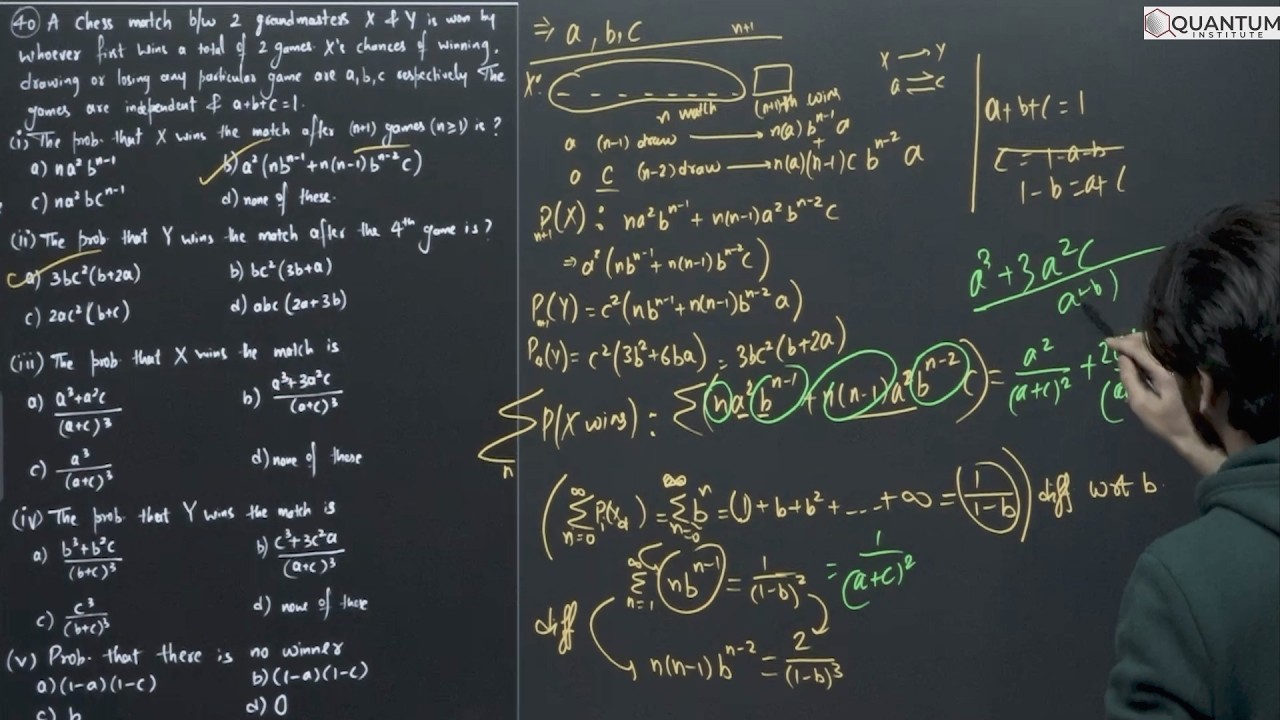 QUANTUM
INSTITUTE
40 A Chess match b/w 2 grandmasters X & Y is won by
whoever first wins a total of 2 games. X's chances of winning,
drawing or losing any particular game are a, b, c respectively. The
games are independent & a+b+c=1.
(i) The prob. that X wins the match after (n+1) games (n≥1) is?
a) na²bⁿ⁻¹
b) a²(nbⁿ⁻¹+n(n-1)bⁿ⁻²c)
c) na²bcⁿ⁻¹
d) none of these.
(ii) The prob that Y wins the match after the 4th game is?
a) 3bc²(b+2a)
b) bc²(3b+a)
c) 2ac²(b+c)
d) abc(2a+3b)
(iii) The prob that X wins the match is
a) (a³+a²c)/(a+c)³
b) (a³+3a²c)/(a+c)³
c) a³/(a+c)³
d) none of these
(iv) The prob. that Y wins the match is
a) (b³+b²c)/(b+c)³
b) (c³+3c²a)/(a+c)³
c) c³/(b+c)³
d) none of these
(v) Prob. that there is no winner
a) (1-a)(1-c)
b) (1-a)(1-c)
c) b
d) 0
⇒ a, b, c
n+1
X:
n match
(n+1)th wins
a (n-1) draw → n(a)bⁿ⁻¹a
+
a c (n-2) draw → n(a)(n-1)c bⁿ⁻² a
Pₙ₊₁(X) : na²bⁿ⁻¹ + n(n-1)a²bⁿ⁻²c
⇒ a²(nbⁿ⁻¹+n(n-1)bⁿ⁻²c)
Pₙ₊₁(Y) = c²(nbⁿ⁻¹+n(n-1)bⁿ⁻²a)
(Y) = c²(3b²+6ba) = 3bc²(b+2a)
∑ₙ P(X wins) : ∑(na²bⁿ⁻¹ + n(n-1)a²bⁿ⁻²c) = a²/(a+c)² +
= ∑ₙ₌₀^∞ bⁿ = (1+b+b²+...+∞ = (1/(1-b))) diff wrt b.
∑ₙ₌₁^∞ nbⁿ⁻¹ = 1/(1-b)² = 1/(a+c)²
diff
n(n-1)bⁿ⁻² = 2/(1-b)³
X → Y
a ⇌ c
a+b+c=1
c = 1-a-b
1-b = a+c
a³+3a²c